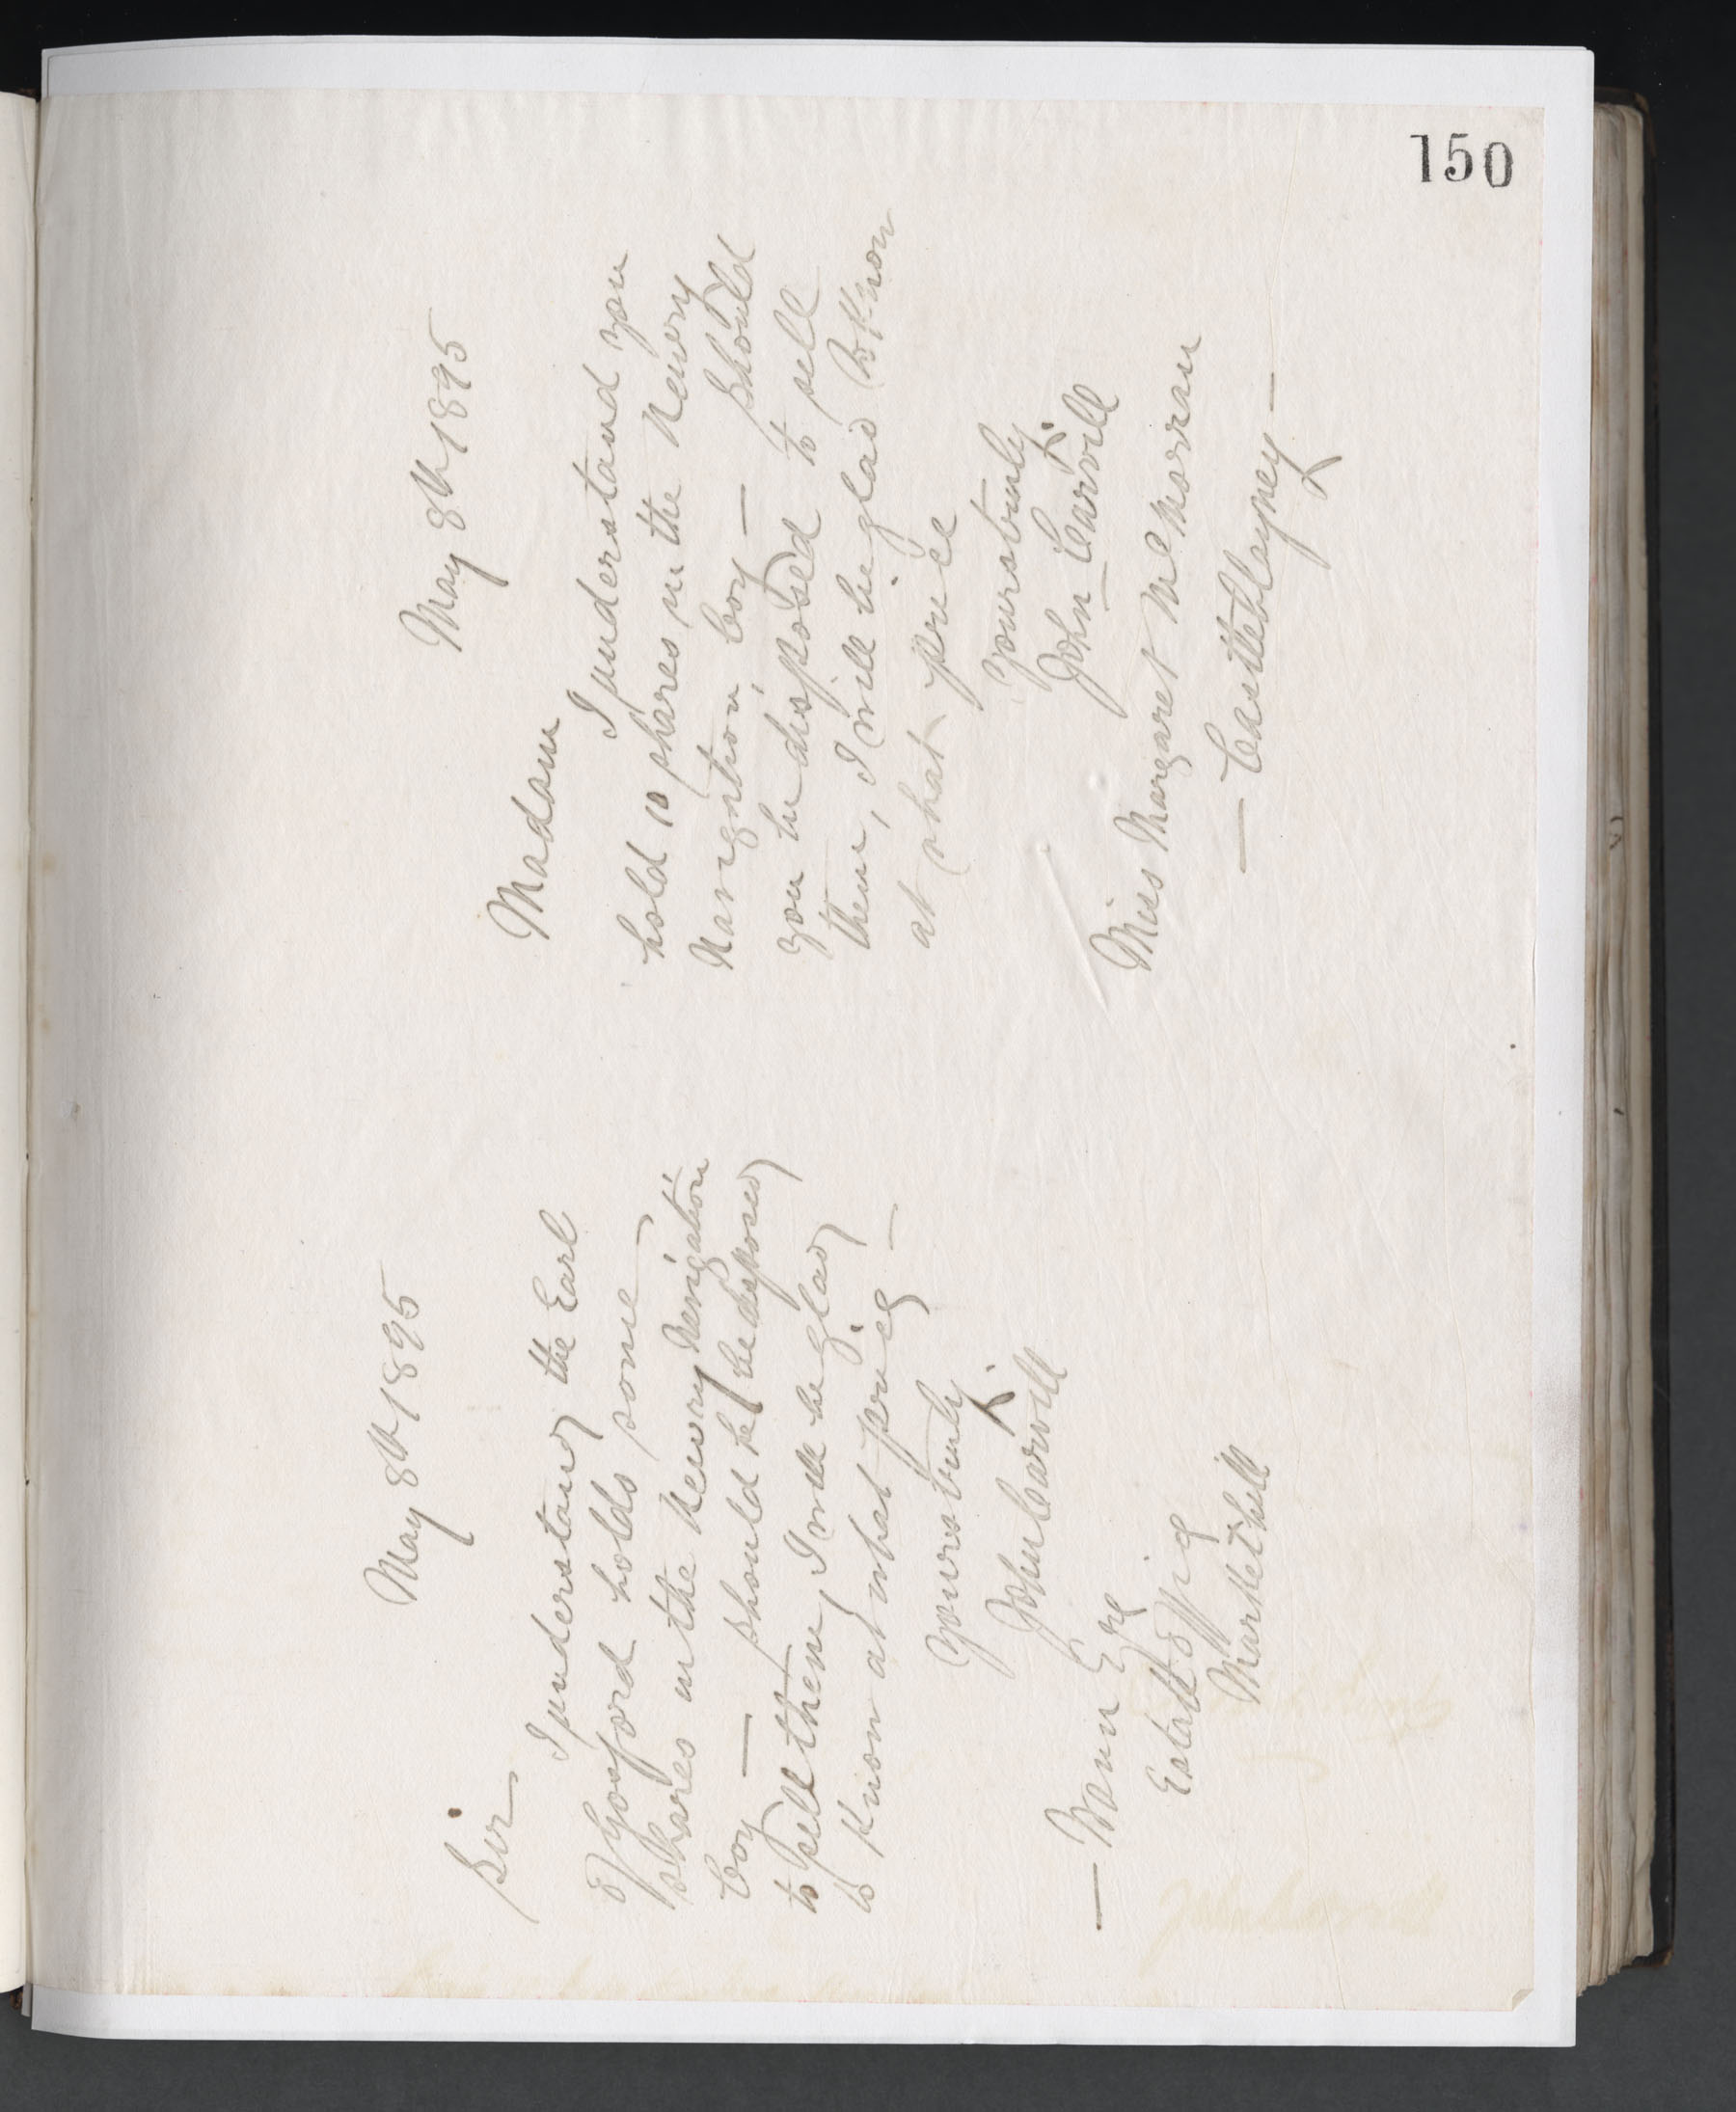 150
May 8th 1895
Sir
I understand the Earl
of Gosford holds some
shares in the Newry Navigation
Coy — Should he be disposed
to sell them, I will be glad
to know at what price —
Yours truly
John Carvill
— Wann Esqre
Estate Office
Markethill
May 8th 1895
Madam
I understand you
hold 10 shares in the Newry
Navigation Coy — Should
you be disposed to sell
them, I will be glad to know
at what price
Yours truly
John Carvill
Miss Margaret McMorran
— Castleblayney —